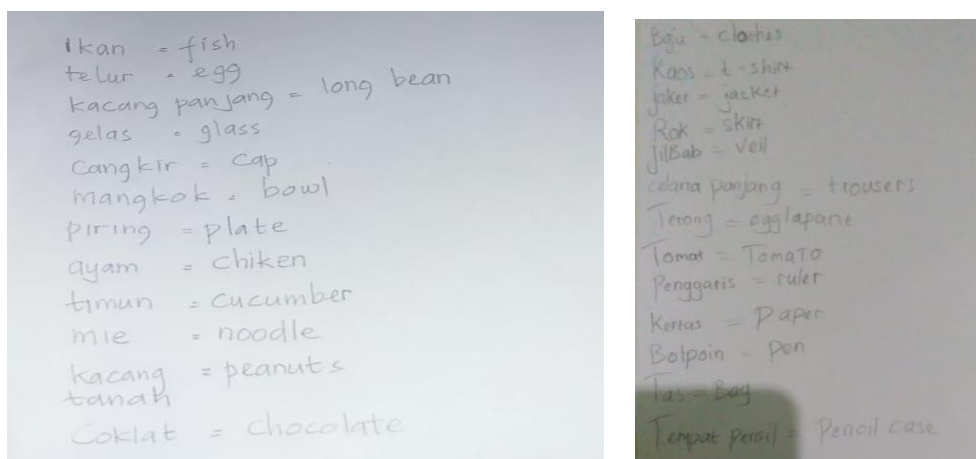 Ikan = fish
telur = egg
kacang panjang = long bean
gelas = glass
Cangkir = Cap
mangkok = bowl
piring = plate
ayam = Chiken
timun = Cucumber
mie = noodle
kacang = peanuts
tanah
Coklat = Chocolate
Baju = clothes
Kaos = t-shirt
jaket = jacket
Rok = skirt
JilBab = Veil
celana panjang = trousers
Terong = egglapant
Tomat = TomaTO
Penggaris = ruler
Kertas = Paper
Bolpoin = Pen
Tas = Bag
Tempat pensil = Pencil case